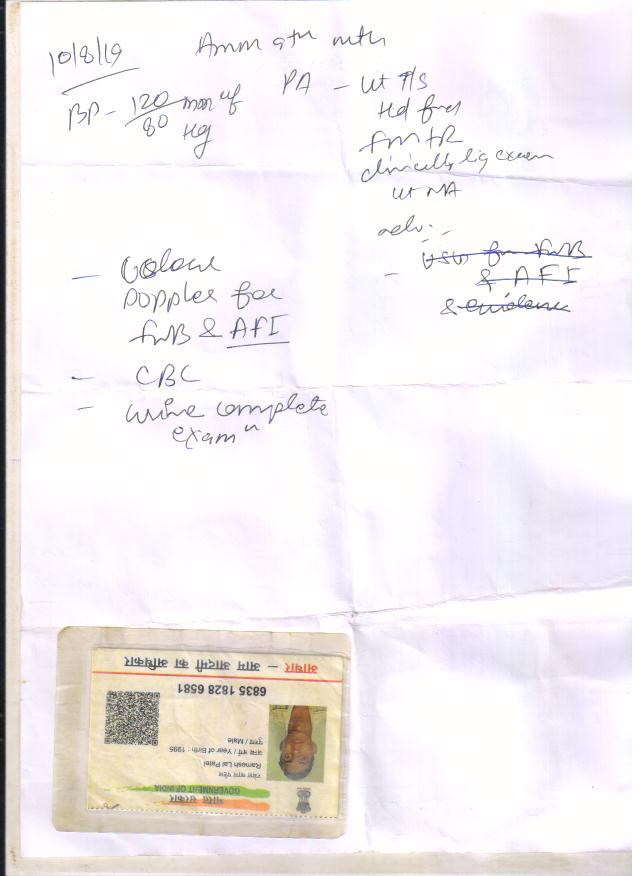 10/8/19
BP - 120/80 mm of
Hg
PA - ut T/S
Hd free
FM FR
clinically liq
ut NA
adv: -
- USG for FWB
& AFI
& evidence
- Colour
Doppler for
FWB & AFI
- CBC
- urine complete
examⁿ
भारत सरकार
GOVERNMENT OF INDIA
रमेश लाल पटेल
Ramesh Lal Patel
जन्म वर्ष / Year of Birth : 1995
पुरुष / Male
6835 1828 6581
आधार – आम आदमी का अधिकार